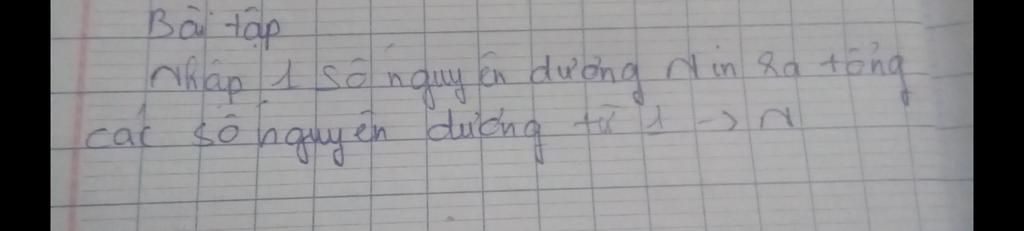 Bài tập
Nhập 1 số nguyên dương N in ra tổng
các số nguyên dương từ 1 -> N